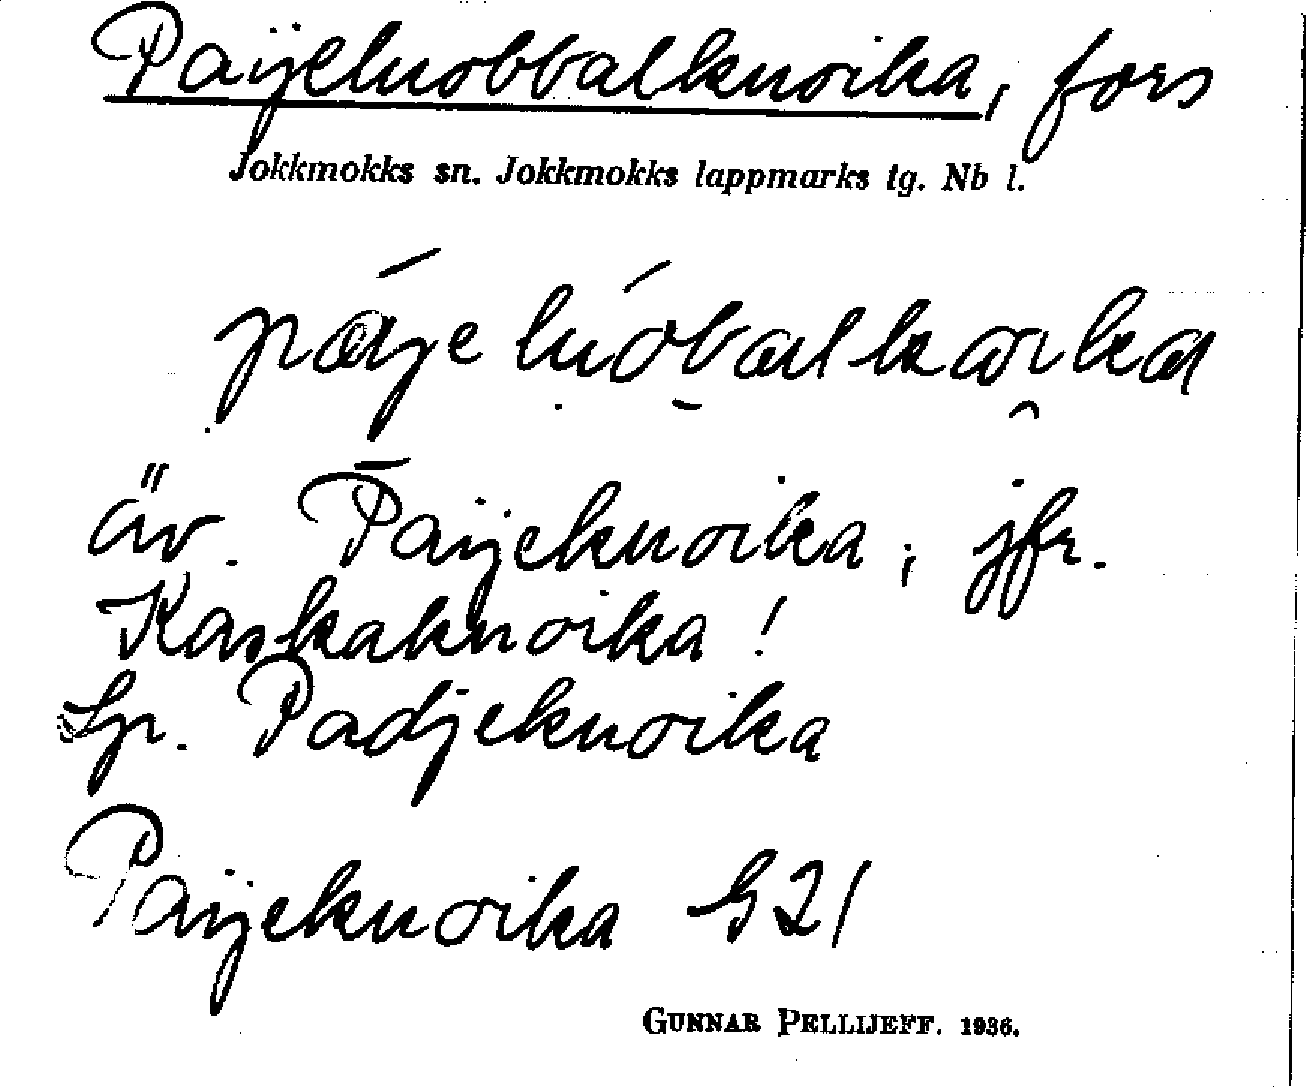 Paijeluobbalkuoika, fors
Jokkmokks sn. Jokkmokks lappmarks tg. Nb l.
páije luóbal kɷika
äv. Paijekuoika, jfr.
Kaskakuoika!
Lp. Padjekuoika
Paijekuoika G21
GUNNAR PELLIJEFF. 1936.